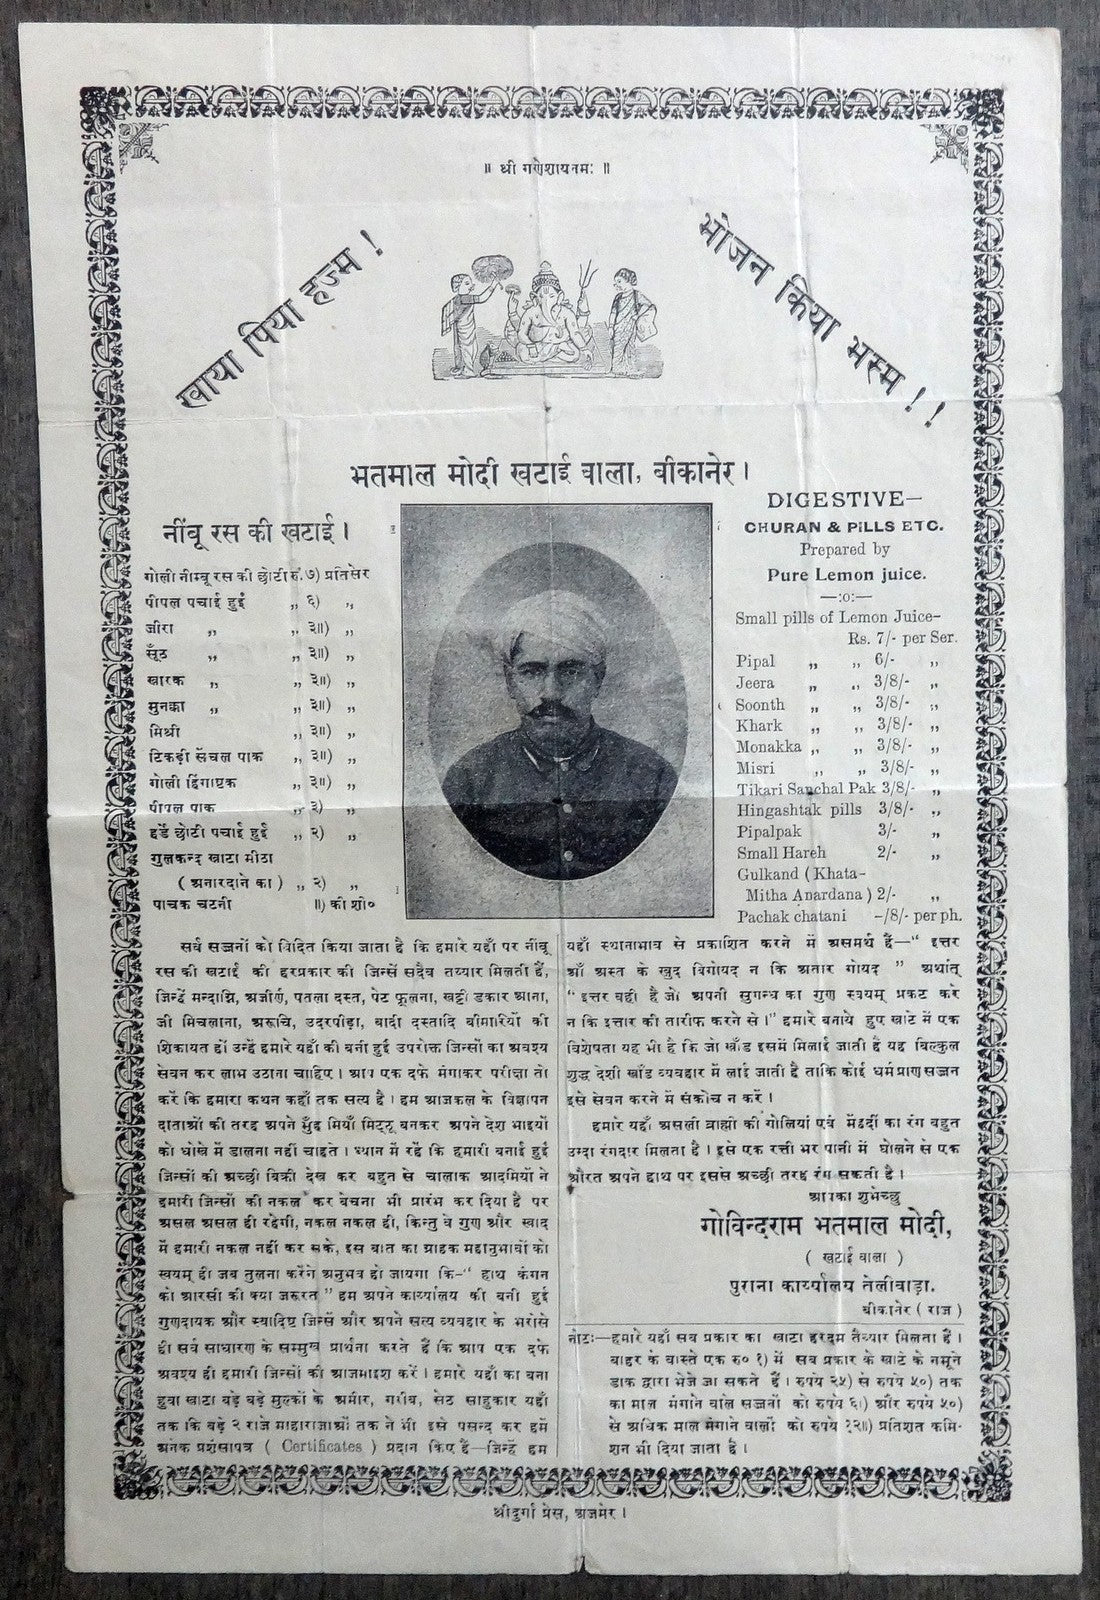 ॥ श्री गणेशायनमः ॥
खाया पिया हज्म !
भोजन किया भस्म !!
भतमाल मोदी खटाई वाला, बीकानेर।
नींबू रस की खटाई।
गोली नीम्बू रस की छोटी रु. ७) प्रतिसेर
पीपल पचाई हुई „ ६) „
जीरा „ „ ३॥) „
सूँठ „ „ ३॥) „
खारक „ „ ३॥) „
मुनक्का „ „ ३॥) „
मिश्री „ ३॥) „
टिकड़ी सेंचल पाक „ ३॥) „
गोली हिंगाष्टक „ ३॥) „
पीपल पाक „ ३) „
हर्डें छोटी पचाई हुई „ २) „
गुलकन्द खाटा मीठा
( अनारदाने का ) „ २) „
पाचक चटनी ॥) की शी०
DIGESTIVE—
CHURAN & PILLS ETC.
Prepared by
Pure Lemon juice.
—:o:—
Small pills of Lemon Juice-
Rs. 7/- per Ser.
Pipal „ „ 6/- „
Jeera „ „ 3/8/- „
Soonth „ „ 3/8/- „
Khark „ „ 3/8/- „
Monakka „ „ 3/8/- „
Misri „ „ 3/8/- „
Tikari Sanchal Pak 3/8/- „
Hingashtak pills 3/8/- „
Pipalpak 3/- „
Small Hareh 2/- „
Gulkand ( Khata-
Mitha Anardana ) 2/- „
Pachak chatani -/8/- per ph.
सर्व सज्जनों को विदित किया जाता है कि हमारे यहाँ पर नींबू
रस की खटाई की हरप्रकार की जिन्सें सदैव तय्यार मिलती हैं,
जिन्हें मन्दाग्नि, अजीर्ण, पतला दस्त, पेट फूलना, खट्टी डकार आना,
जी मिचलाना, अरुचि, उदरपीड़ा, बादी दस्तादि बीमारियों की
शिकायत हों उन्हें हमारे यहाँ की बनी हुई उपरोक्त जिन्सों का अवश्य
सेवन कर लाभ उठाना चाहिए। आप एक दफे मंगाकर परीक्षा तो
करें कि हमारा कथन कहाँ तक सत्य है। हम आजकल के विज्ञापन
दाताओं की तरह अपने मुँह मियाँ मिट्ठू बनकर अपने देश भाइयों
को धोखे में डालना नहीं चाहते। ध्यान में रहें कि हमारी बनाई हुई
जिन्सों की अच्छी बिक्री देख कर बहुत से चालाक आदमियों ने
हमारी जिन्सों की नकल कर बेचना भी प्रारंभ कर दिया है पर
असल असल ही रहेगी, नकल नकल ही, किन्तु वे गुण और स्वाद
में हमारी नकल नहीं कर सके, इस बात का ग्राहक महानुभावों को
स्वयम् ही जब तुलना करेंगे अनुभव हो जायगा कि-“ हाथ कंगन
को आरसी की क्या जरूरत ” हम अपने कार्य्यालय की बनी हुई
गुणदायक और स्वादिष्ट जिन्सें और अपने सत्य व्यवहार के भरोसे
ही सर्व साधारण के सम्मुख प्रार्थना करते हैं कि आप एक दफे
अवश्य ही हमारी जिन्सों की आजमाइश करें। हमारे यहाँ का बना
हुवा खाटा बड़े बड़े मुल्कों के अमीर, गरीब, सेठ साहूकार यहाँ
तक कि बड़े २ राजे माहाराजाओं तक ने भी इसे पसन्द कर हमें
अनेक प्रशंसापत्र ( Certificates ) प्रदान किए हैं—जिन्हें हम
यहाँ स्थानाभाव से प्रकाशित करने में असमर्थ हैं—“ इत्तर
आँ अस्त के खुद बिगोयद न कि अतार गोयद ” अर्थात्
“ इत्तर वही है जो अपनी सुगन्ध का गुण स्वयम् प्रकट करे
न कि इत्तार की तारीफ करने से।” हमारे बनाये हुए खाटे में एक
विशेषता यह भी है कि जो खाँड इसमें मिलाई जाती है यह बिल्कुल
शुद्ध देशी खाँड व्यवहार में लाई जाती है ताकि कोई धर्मप्राण सज्जन
इसे सेवन करने में संकोच न करें।
हमारे यहाँ असली ब्राह्मी की गोलियां एवं मेंहदी का रंग बहुत
उम्दा रंगदार मिलता है। इसे एक रत्ती भर पानी में घोलने से एक
औरत अपने हाथ पर इससे अच्छी तरह रंग सकती है।
आपका शुभेच्छु
गोविन्दराम भतमाल मोदी,
( खटाई वाला )
पुराना कार्य्यालय तेलीवाड़ा.
बीकानेर ( राज )
नोटः—हमारे यहाँ सब प्रकार का खाटा हरदम तैय्यार मिलता है।
बाहर के वास्ते एक रु० १) में सब प्रकार के खाटे के नमूने
डाक द्वारा भेजे जा सकते हैं। रुपये २५) से रुपये ५०) तक
का माल मंगाने वाले सज्जनों को रुपये ६।) और रुपये ५०)
से अधिक माल मंगाने वालों को रुपये १२॥) प्रतिशत कमि-
शन भी दिया जाता है।
श्रीदुर्गा प्रेस, अजमेर।